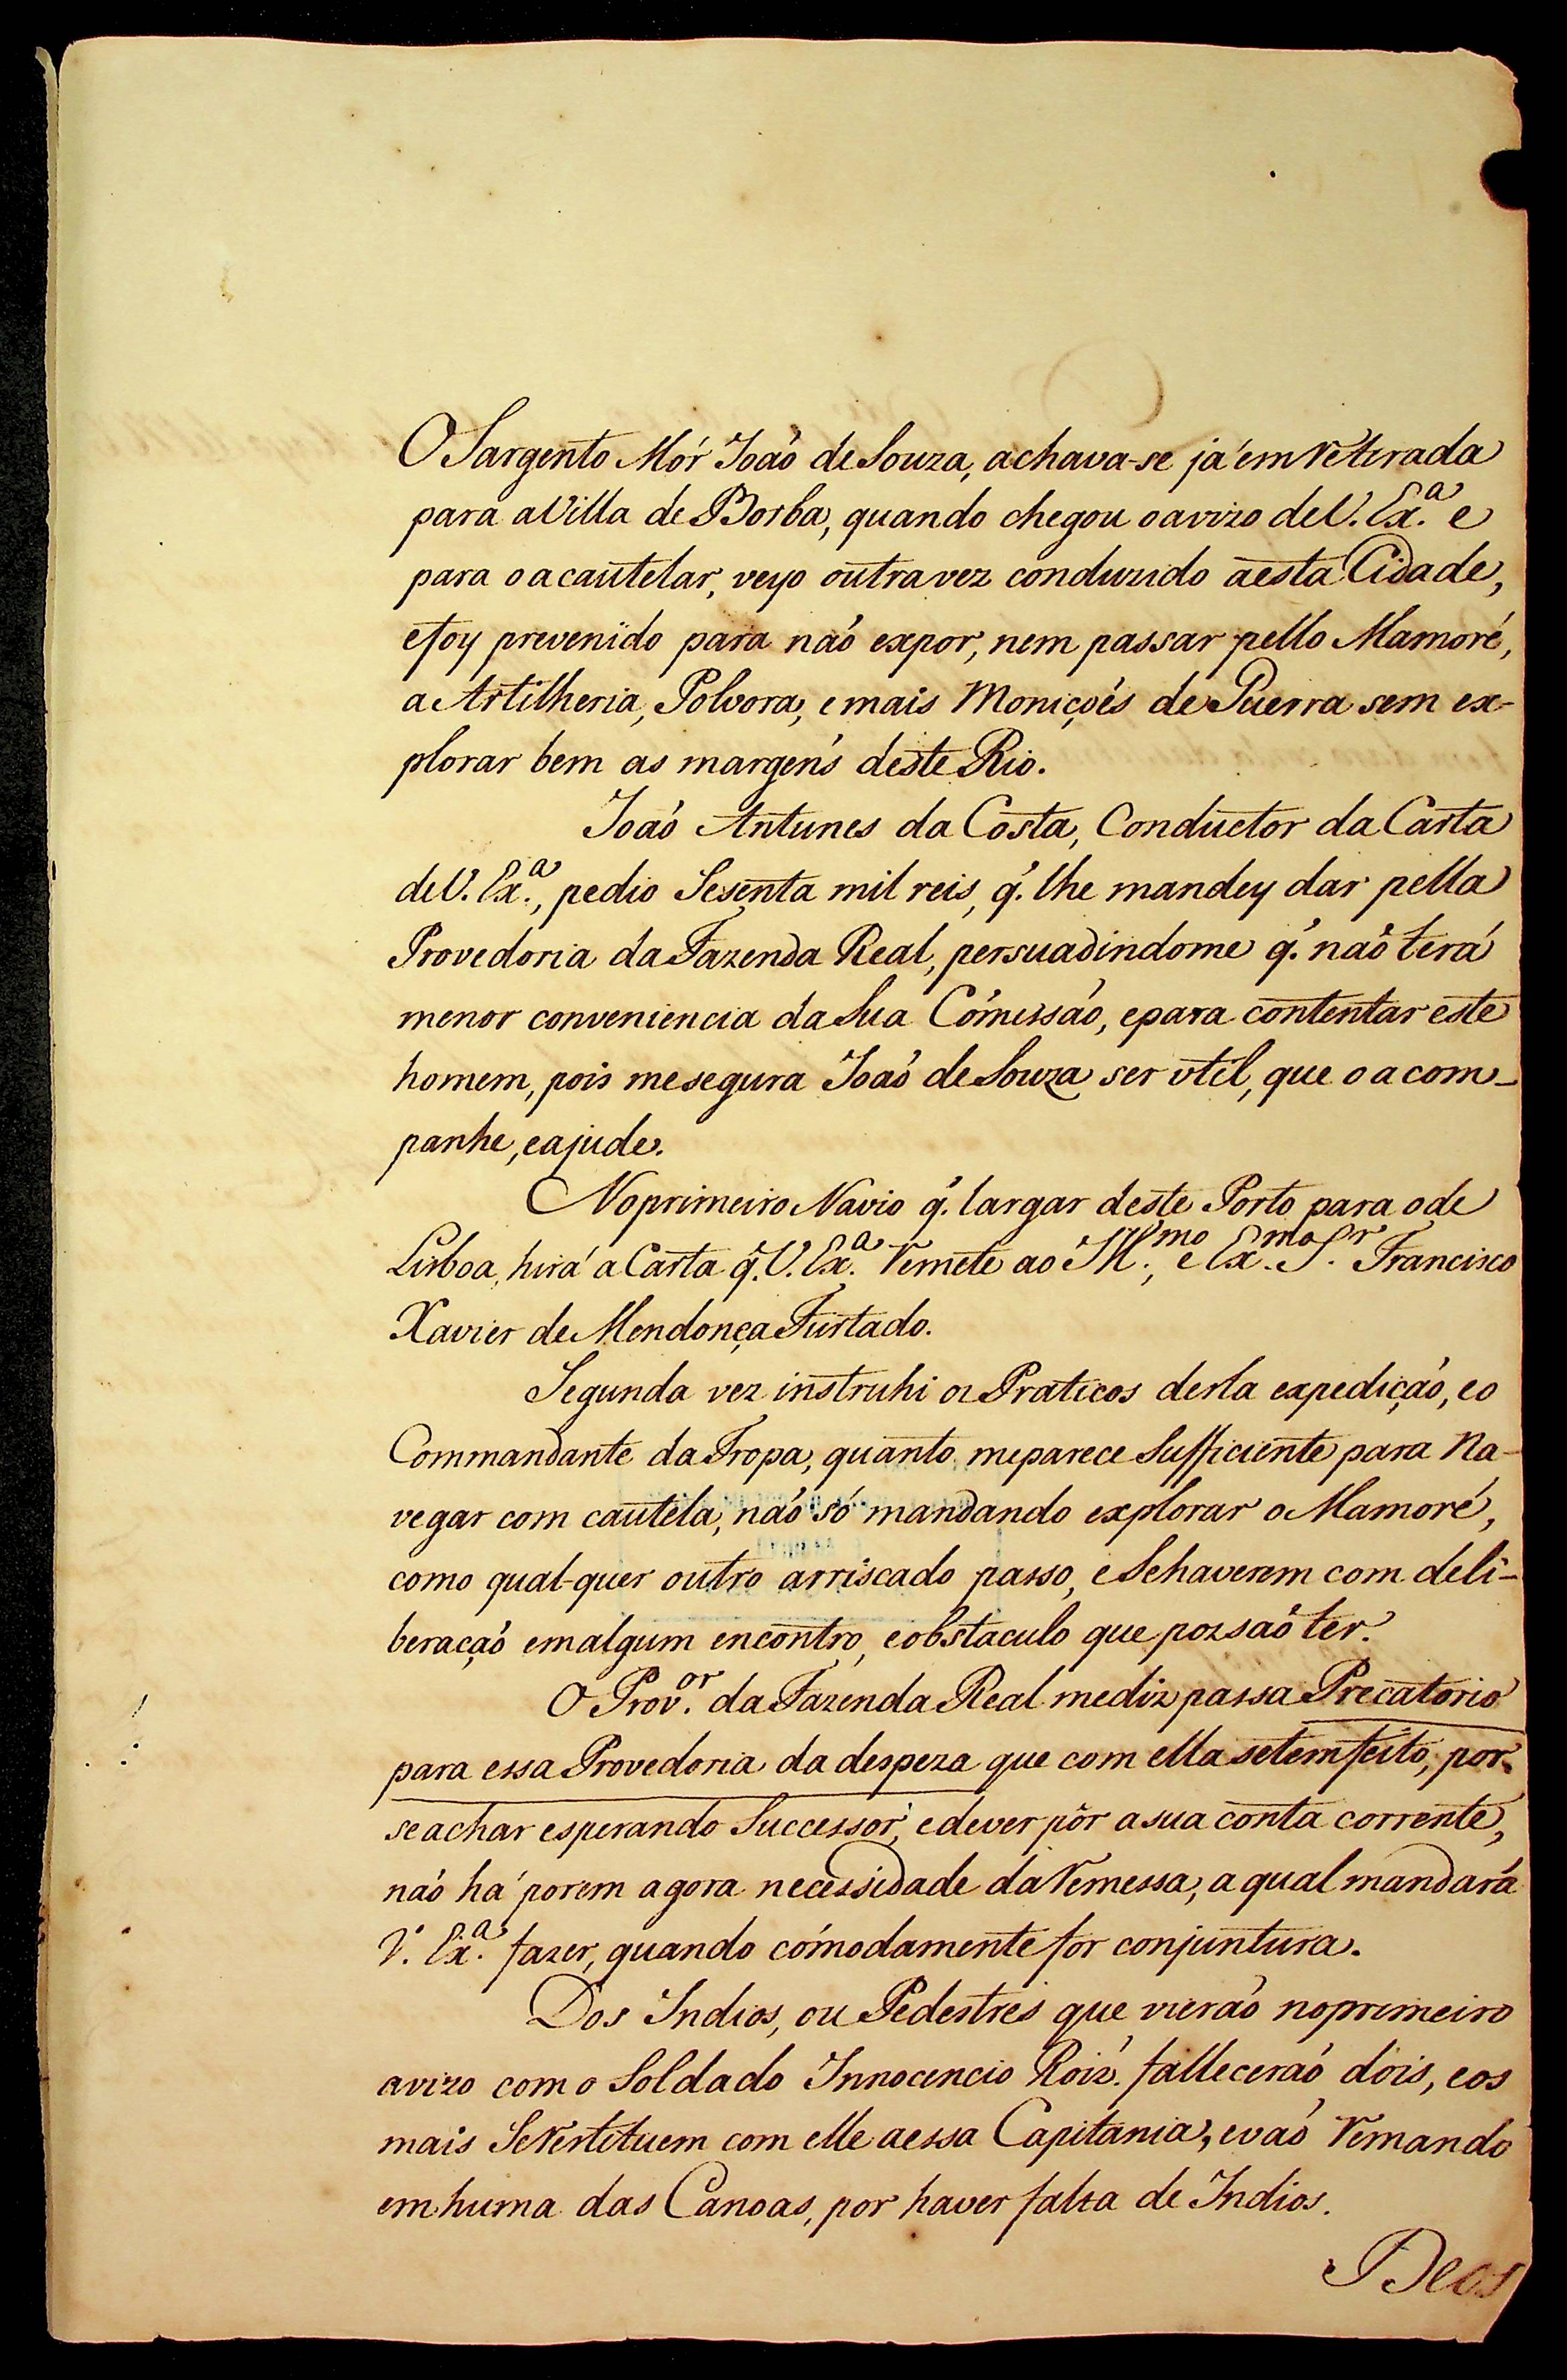 O Sargento Mór Joaõ de Souza, achava-se já em retirada
para a Villa de Borba, quando chegou o avizo de V. Ex.ª e
para o acautelar, veyo outra vez conduzido a esta Cidade,
e foy prevenido para naõ expor, nem passar pello Mamoré,
a Artilheria, Polvora, e mais Moniçoẽs de Guerra sem ex-
plorar bem as margens deste Rio.
Joaõ Antunes da Costa, Conductor da Carta
de V. Ex.ª, pedio Sesenta mil reis, q̃. lhe mandey dar pella
Provedoria da Fazenda Real, persuadindome q̃. naõ terá
menor conveniencia da Sua Cõmissaõ, e para contentar este
homem, pois me segura Joaõ de Souza ser util, que o acom-
panhe, e ajude.
No primeiro Navio q̃. largar deste Porto para o de
Lisboa, hirá a Carta q̃. V. Ex.ª remete ao Ill.mo, e Ex.mo S.r Francisco
Xavier de Mendonça Furtado.
Segunda vez instruhi os Praticos desta expediçaõ, e o
Commandante da Tropa, quanto me parece Sufficiente para Na-
vegar com cautela, naõ só mandando explorar o Mamoré,
como qual-quer outro arriscado passo, e Se haverem com deli-
beraçaõ em algum encontro, e obstaculo que possaõ ter.
O Prov.or da Fazenda Real me diz passa Precatorio
para essa Provedoria da despeza que com ella se tem feito, por
se achar esperando Successor, e dever pôr a sua conta corrente,
naõ há porem agora necessidade da remessa, a qual mandará
V. Ex.ª fazer, quando cõmodamente for conjuntura.
Dos Indios, ou Pedestres que vieraõ no primeiro
avizo com o Soldado Innocencio Roiz. falleceraõ dois, e os
mais Se restituem com elle a essa Capitania, e vaõ remando
em huma das Canoas, por haver falta de Indios.
Deos